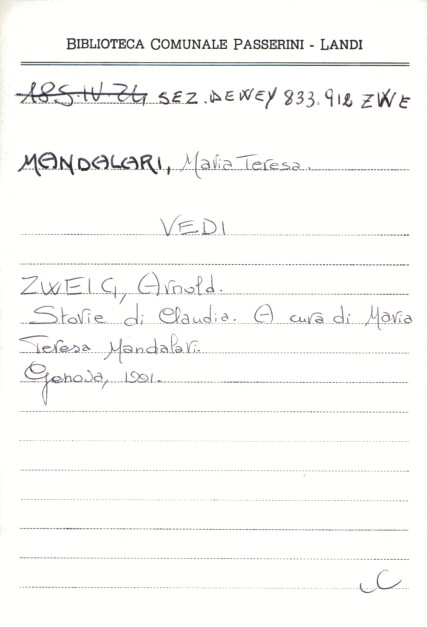 BIBLIOTECA COMUNALE PASSERINI - LANDI
185.IV.24 SEZ. DEWEY 833.912 ZWE
MANDALARI, Maria Teresa.
VEDI
ZWEIG, Arnold.
Storie di Claudia. A cura di Maria
Teresa Mandalari.
Genova, 1991.